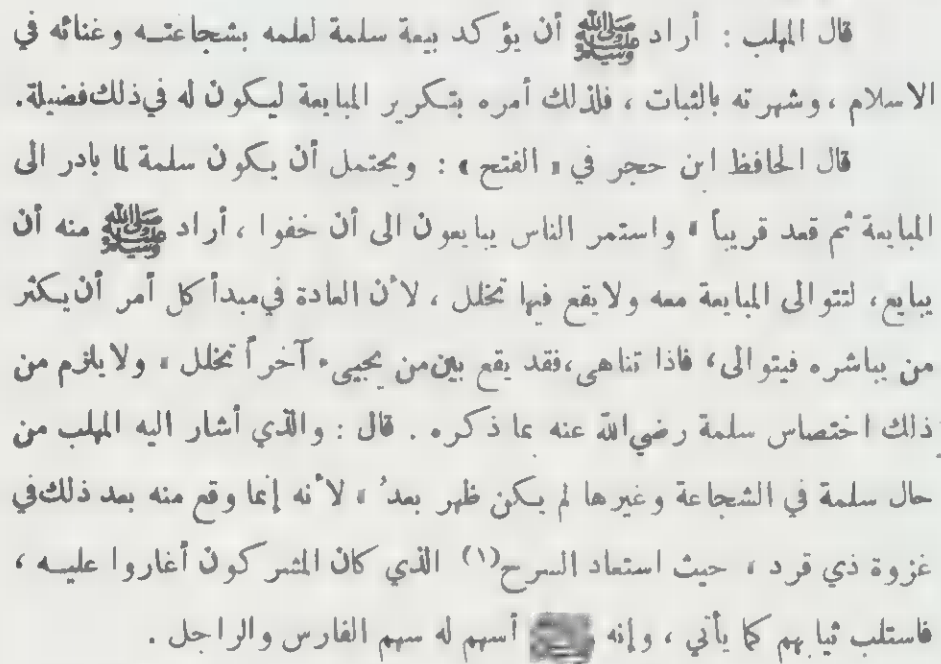 قال المهلب : أراد ﷺ أن يؤكد بيعة سلمة لعلمه بشجاعته وغنائه في
الاسلام ، وشهرته بالثبات ، فلذلك أمره بتكرير المبايعة ليكون له في ذلك فضيلة.
قال الحافظ ابن حجر في « الفتح » : ويحتمل أن يكون سلمة لما بادر الى
المبايعة ثم قعد قريباً ، واستمر الناس يبايعون الى أن خفوا ، أراد ﷺ منه أن
يبايع ، لتتوالى المبايعة معه ولا يقع فيها تخلل ، لأن العادة في مبدأ كل أمر أن يكثر
من يباشره فيتوالى ، فاذا تناهى ، فقد يقع بين من يجييء آخراً تخلل ، ولا يلزم من
ذلك اختصاص سلمة رضي الله عنه بما ذكره . قال : والذي أشار اليه المهلب من
حال سلمة في الشجاعة وغيرها لم يكن ظهر بعدُ ، لأنه إنما وقع منه بعد ذلك في
غزوة ذي قرد ، حيث استعاد السرح(١) الذي كان المشركون أغاروا عليه ،
فاستلب ثيابهم كما يأتي ، وإنه أسهم له سهم الفارس والراجل .